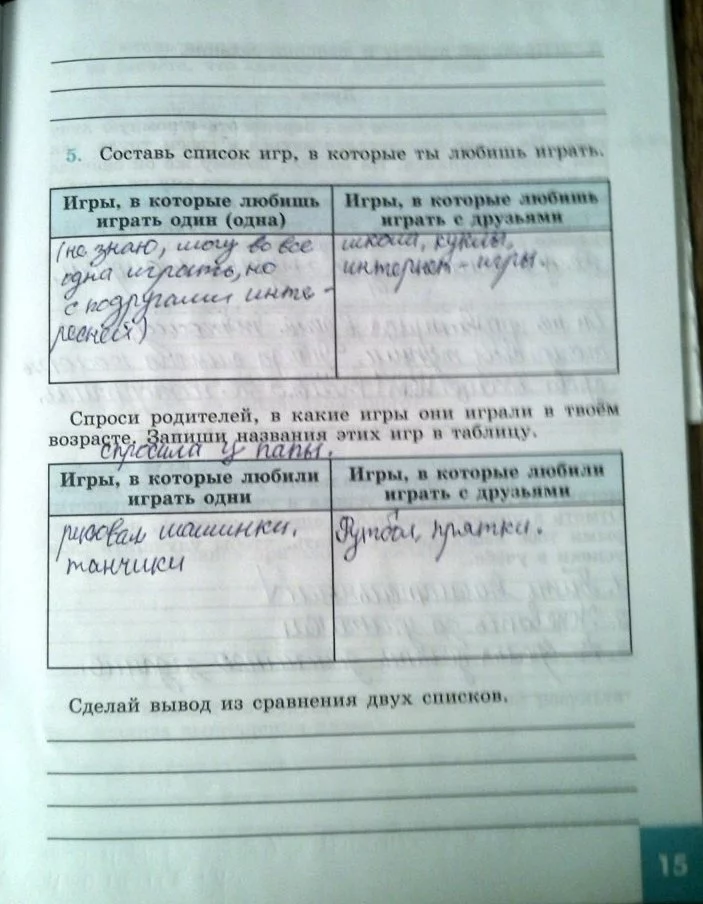 5. Составь список игр, в которые ты любишь играть.
Игры, в которые любишь
играть один (одна)
Игры, в которые любишь
играть с друзьями
(не знаю, могу во все
одна играть, но
с подругами инте-
ресней)
школа, куклы,
интернет - игры.
Спроси родителей, в какие игры они играли в твоём
возрасте. Запиши названия этих игр в таблицу.
спросила у папы.
Игры, в которые любили
играть одни
Игры, в которые любили
играть с друзьями
рисовал машинки,
танчики
Футбол, прятки.
Сделай вывод из сравнения двух списков.
15